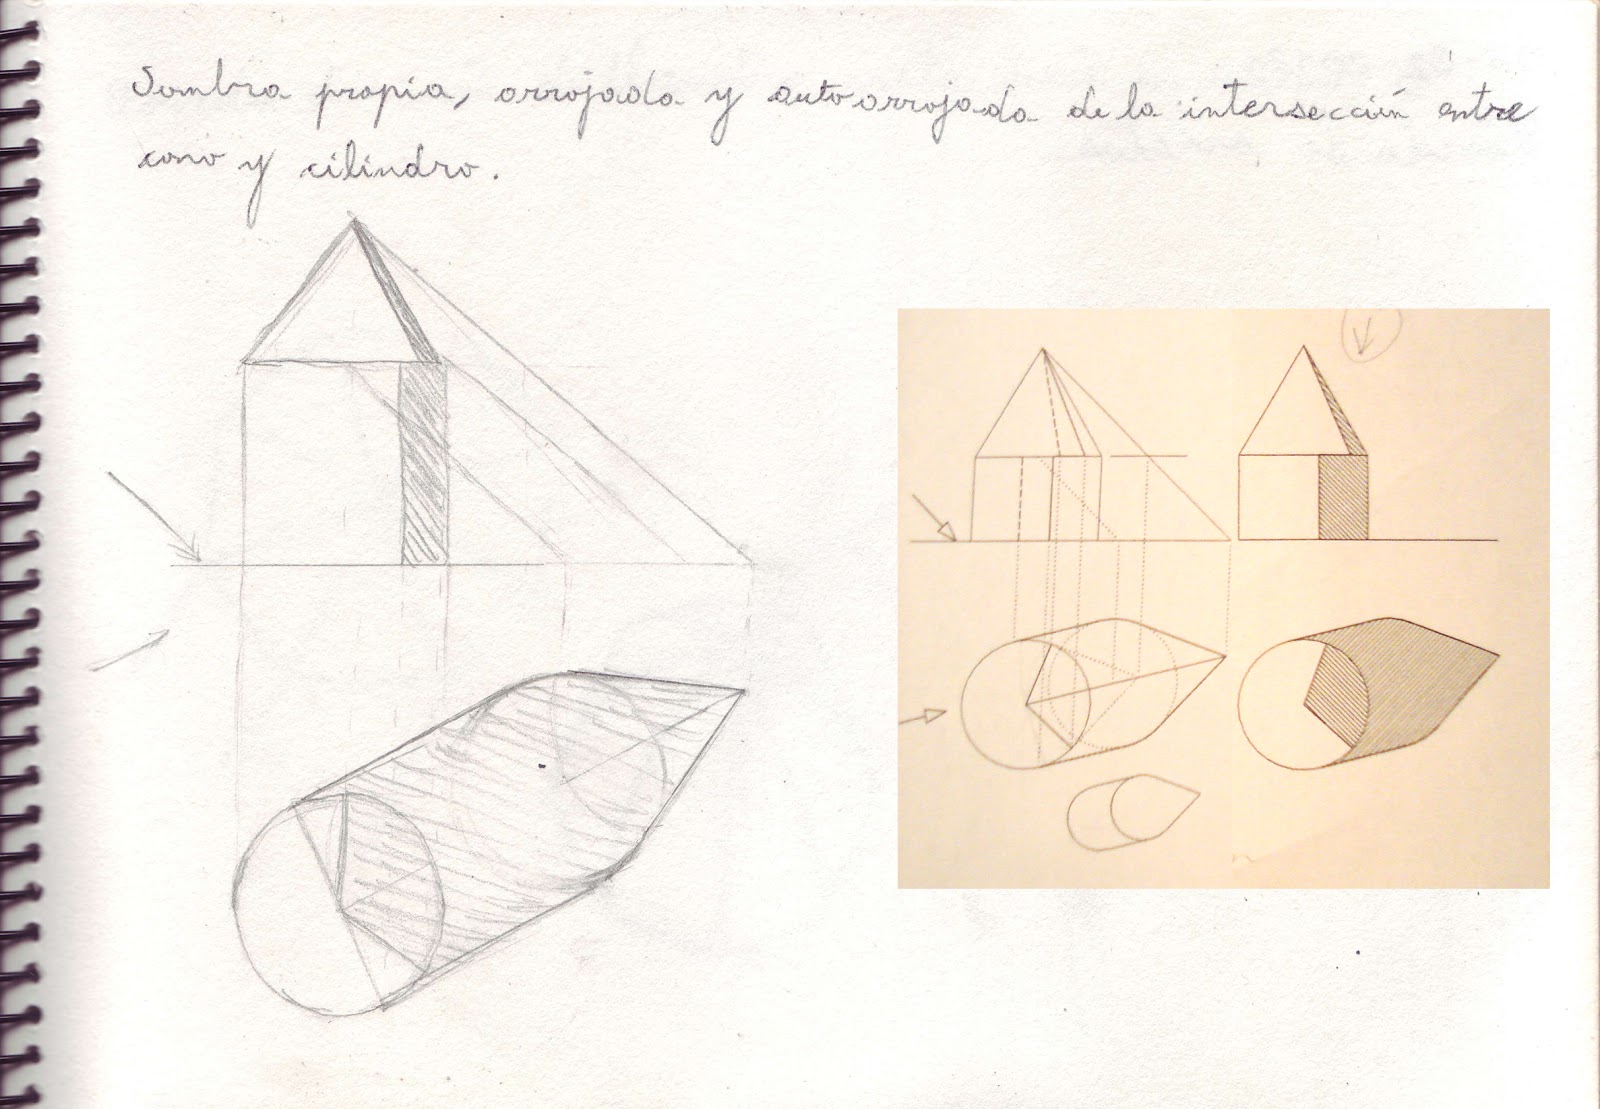 Sombra propia, arrojada y autoarrojada de la intersección entre
cono y cilindro.